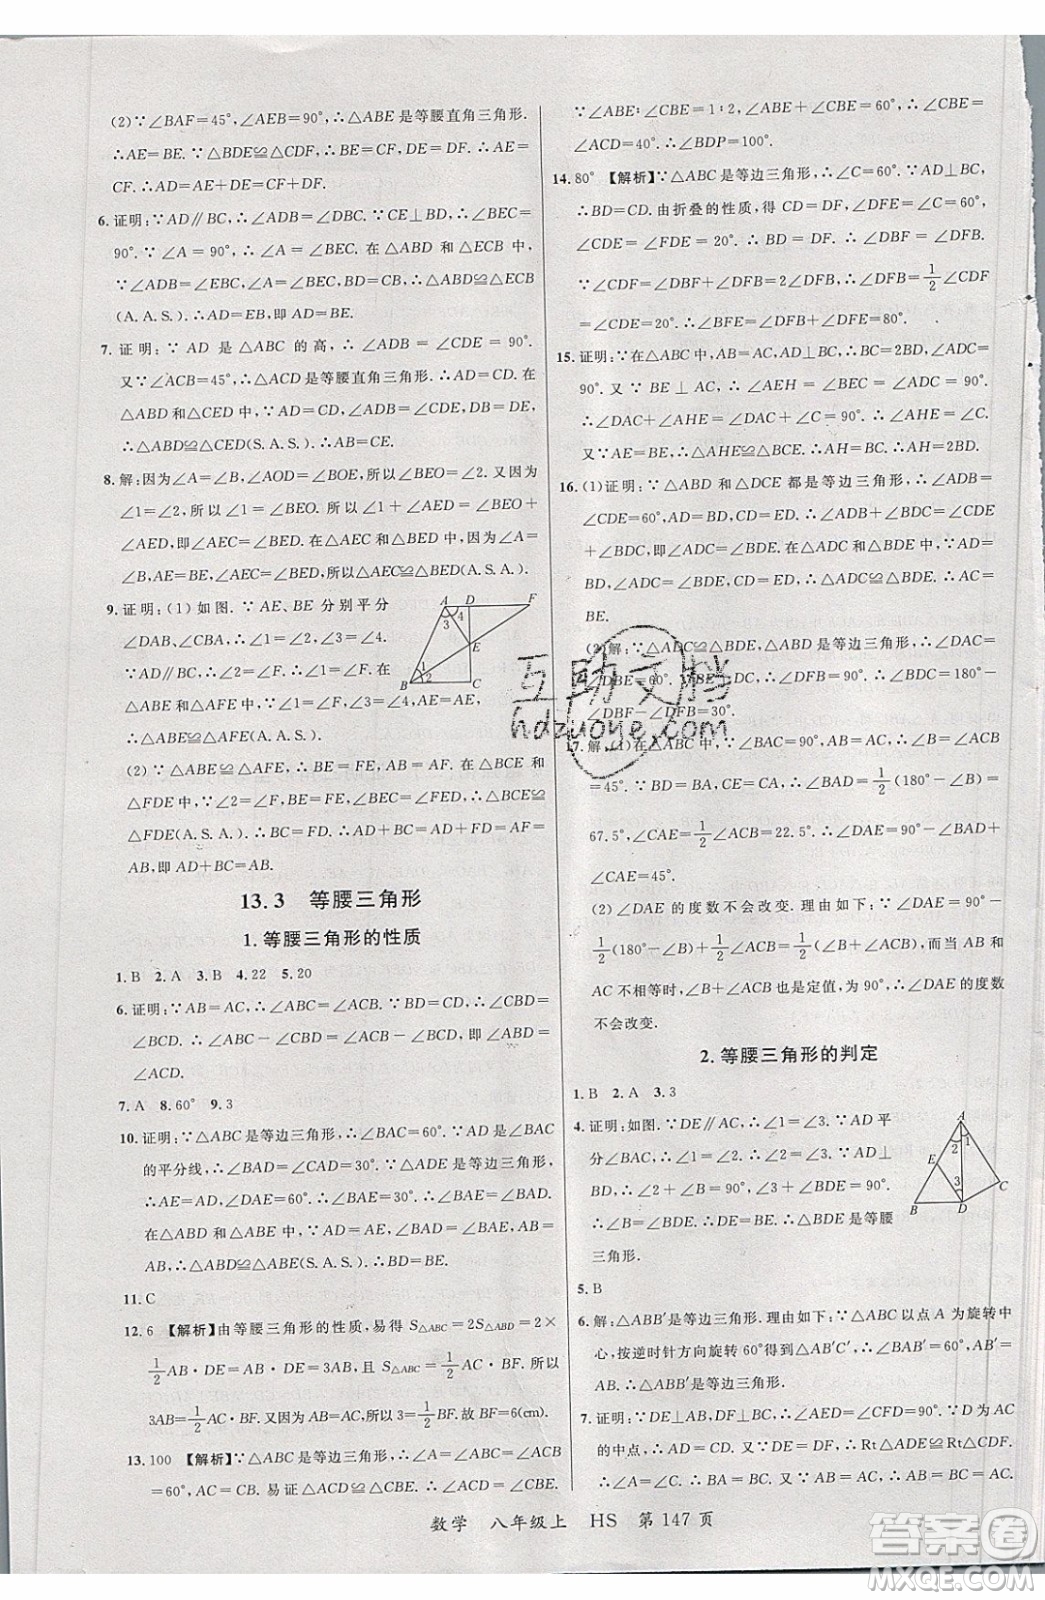 (2)∵∠BAF=45°,∠AEB=90°,∴△ABE是等腰直角三角形.
∴AE=BE.∵△BDE≌△CDF,∴BE=CF,DE=DF.∴AE=
CF.∴AD=AE+DE=CF+DF.
6.证明:∵AD∥BC,∴∠ADB=∠DBC.∵CE⊥BD,∴∠BEC=
90°.∵∠A=90°,∴∠A=∠BEC.在△ABD和△ECB中,
∵∠ADB=∠EBC,∠A=∠BEC,BD=BC,∴△ABD≌△ECB
(A.A.S.).∴AD=EB,即AD=BE.
7.证明:∵AD是△ABC的高,∴∠ADB=∠CDE=90°.
又∵∠ACB=45°,∴△ACD是等腰直角三角形.∴AD=CD.在
△ABD和△CED中,∵AD=CD,∠ADB=∠CDE,BD=DE,
∴△ABD≌△CED(S.A.S.).∴AB=CE.
8.解:因为∠A=∠B,∠AOD=∠BOE,所以∠BEO=∠2.又因为
∠1=∠2,所以∠1=∠BEO.所以∠1+∠AED=∠BEO+
∠AED,即∠AEC=∠BED.在△AEC和△BED中,因为∠A=
∠B,AE=BE,∠AEC=∠BED,所以△AEC≌△BED(A.S.A.).
9.证明:(1)如图.∵AE、BE分别平分
∠DAB、∠CBA,∴∠1=∠2,∠3=∠4.
∵AD∥BC,∴∠2=∠F.∴∠1=∠F.
在△ABE和△AFE中,∵∠1=∠F,∠3=∠4,AE=AE,
∴△ABE≌△AFE(A.A.S.).
(2)∵△ABE≌△AFE,∴BE=FE,AB=AF.在△BCE和
△FDE中,∵∠2=∠F,BE=FE,∠BEC=∠FED,∴△BCE≌
△FDE(A.S.A.).∴BC=FD.∴AD+BC=AD+FD=AF=
AB,即AD+BC=AB.
13.3 等腰三角形
1.等腰三角形的性质
1.B 2.A 3.B 4.22 5.20
6.证明:∵AB=AC,∴∠ABC=∠ACB.∵BD=CD,∴∠CBD=
∠BCD.∴∠ABC-∠CBD=∠ACB-∠BCD,即∠ABD=
∠ACD.
7.A 8.60° 9.3
10.证明:∵△ABC是等边三角形,∴∠BAC=60°.∵AD是∠BAC
的平分线,∴∠BAD=∠CAD=30°.∵△ADE是等边三角形,
∴AD=AE,∠DAE=60°.∴∠BAE=30°.∴∠BAE=∠BAD.
在△ABD和△ABE中,∵AB=AB,∠BAD=∠BAE,AD=AE,
∴△ABD≌△ABE(S.A.S.).∴BD=BE.
11.C
12.6 【解析】由等腰三角形的性质,易得S△ABC=2S△ABD=2×
1/2AB·DE=AB·DE=3AB,且S△ABC=1/2AC·BF.所以
3AB=1/2AC·BF.又因为AC=AB,所以3=1/2BF.故BF=6(cm).
13.100 【解析】∵△ABC是等边三角形,∴∠A=∠ABC=∠ACB
=60°,AC=CB.易证△ACD≌△CBE.∴∠ACD=∠CBE.
∵∠ABE:∠CBE=1:2,∠ABE+∠CBE=60°,∴∠CBE=
∠ACD=40°.∴∠BDP=100°.
14.80° 【解析】∵△ABC是等边三角形,∴∠C=60°.∵AD⊥BC,
∴BD=CD.由折叠的性质,得CD=DF,∠DFE=∠C=60°,
∠CDE=∠FDE=20°.∴BD=DF.∴∠B=∠DFB.
∵∠CDF=∠B+∠DFB=2∠DFB,∴∠DFB=1/2∠CDF
=∠CDE=20°.∴∠BFE=∠DFB+∠DFE=80°.
15.证明:∵在△ABC中,AB=AC,AD⊥BC,∴BC=2BD,∠ADC=
90°.又∵BE⊥AC,∴∠AEH=∠BEC=∠ADC=90°.
∴∠DAC+∠AHE=∠DAC+∠C=90°.∴∠AHE=∠C.
又∵AE=BE,∴△AHE≌△BCE.∴AH=BC.∴AH=2BD.
16.(1)证明:∵△ABD和△DCE都是等边三角形,∴∠ADB=
∠CDE=60°,AD=BD,CD=DE.∴∠ADB+∠BDC=∠CDE
+∠BDC,即∠ADC=∠BDE.∴△ADC≌△BDE.∴AC=
BE.
(2)解:∵△ADC≌△BDE,△ABD是等边三角形,∴∠DAC=
∠DBE=60°.∵BE⊥AC,∴∠DFB=90°.∴∠BDC=180°-
∠DBF-∠DFB=30°.
17.解:(1)在△ABC中,∵∠BAC=90°,AB=AC,∴∠B=∠ACB
=45°.∵BD=BA,CE=CA,∴∠BAD=1/2(180°-∠B)=
67.5°,∠CAE=1/2∠ACB=22.5°.∴∠DAE=90°-∠BAD+
∠CAE=45°.
(2)∠DAE的度数不会改变.理由如下:∵∠DAE=90°-
1/2(180°-∠B)+1/2∠ACB=1/2(∠B+∠ACB),而当AB和
AC不相等时,∠B+∠ACB也是定值,为90°,∴∠DAE的度数
不会改变.
2.等腰三角形的判定
1.B 2.A 3.3
4.证明:如图.∵DE∥AC,∴∠1=∠3.∵AD平
分∠BAC,∴∠1=∠2.∴∠2=∠3.∵AD⊥
BD,∴∠2+∠B=90°,∠3+∠BDE=90°.
∴∠B=∠BDE.∴DE=BE.∴△BDE是等腰
三角形.
5.B
6.解:△ABB′是等边三角形.理由如下:∵△ABC以点A为旋转中
心,按逆时针方向旋转60°得到△AB′C′,∴AB=AB′,∠BAB′=
60°.∴△ABB′是等边三角形.
7.证明:∵DE⊥AB,DF⊥BC,∴∠AED=∠CFD=90°.∵D为AC
的中点,∴AD=CD.又∵DE=DF,∴Rt△ADE≌Rt△CDF.
∴∠A=∠C.∴BA=BC.又∵AB=AC,∴AB=BC=AC.
A D F
3 4
E
1
B 2 C
A
2 1
E
3
C
B D
互助文档
hdzuoye.com
数学 八年级上 HS 第147页
答案圈
MXQE.COM